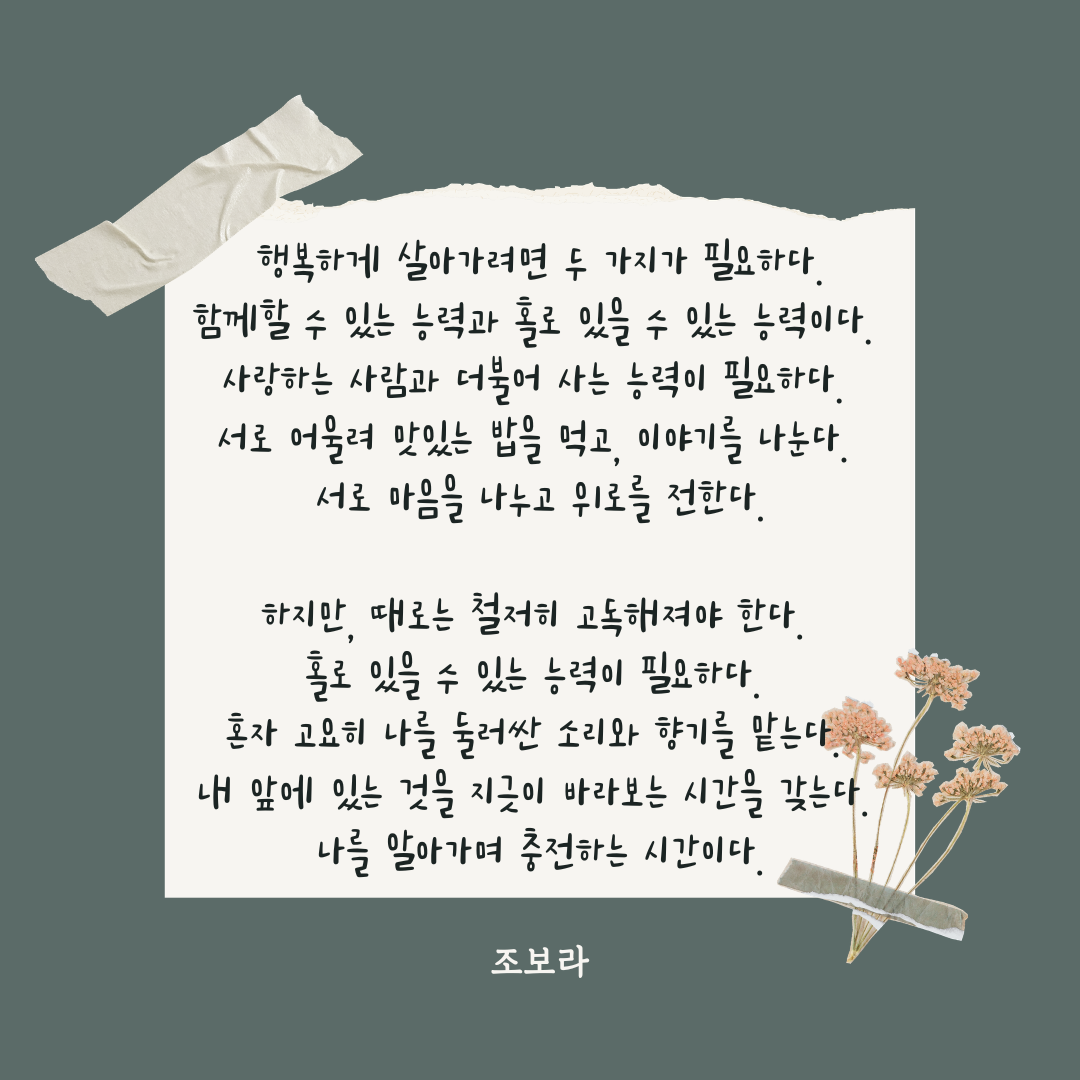 행복하게 살아가려면 두 가지가 필요하다.
함께할 수 있는 능력과 홀로 있을 수 있는 능력이다.
사랑하는 사람과 더불어 사는 능력이 필요하다.
서로 어울려 맛있는 밥을 먹고, 이야기를 나눈다.
서로 마음을 나누고 위로를 전한다.
하지만, 때로는 철저히 고독해져야 한다.
홀로 있을 수 있는 능력이 필요하다.
혼자 고요히 나를 둘러싼 소리와 향기를 맡는다.
내 앞에 있는 것을 지긋이 바라보는 시간을 갖는다.
나를 알아가며 충전하는 시간이다.
조보라